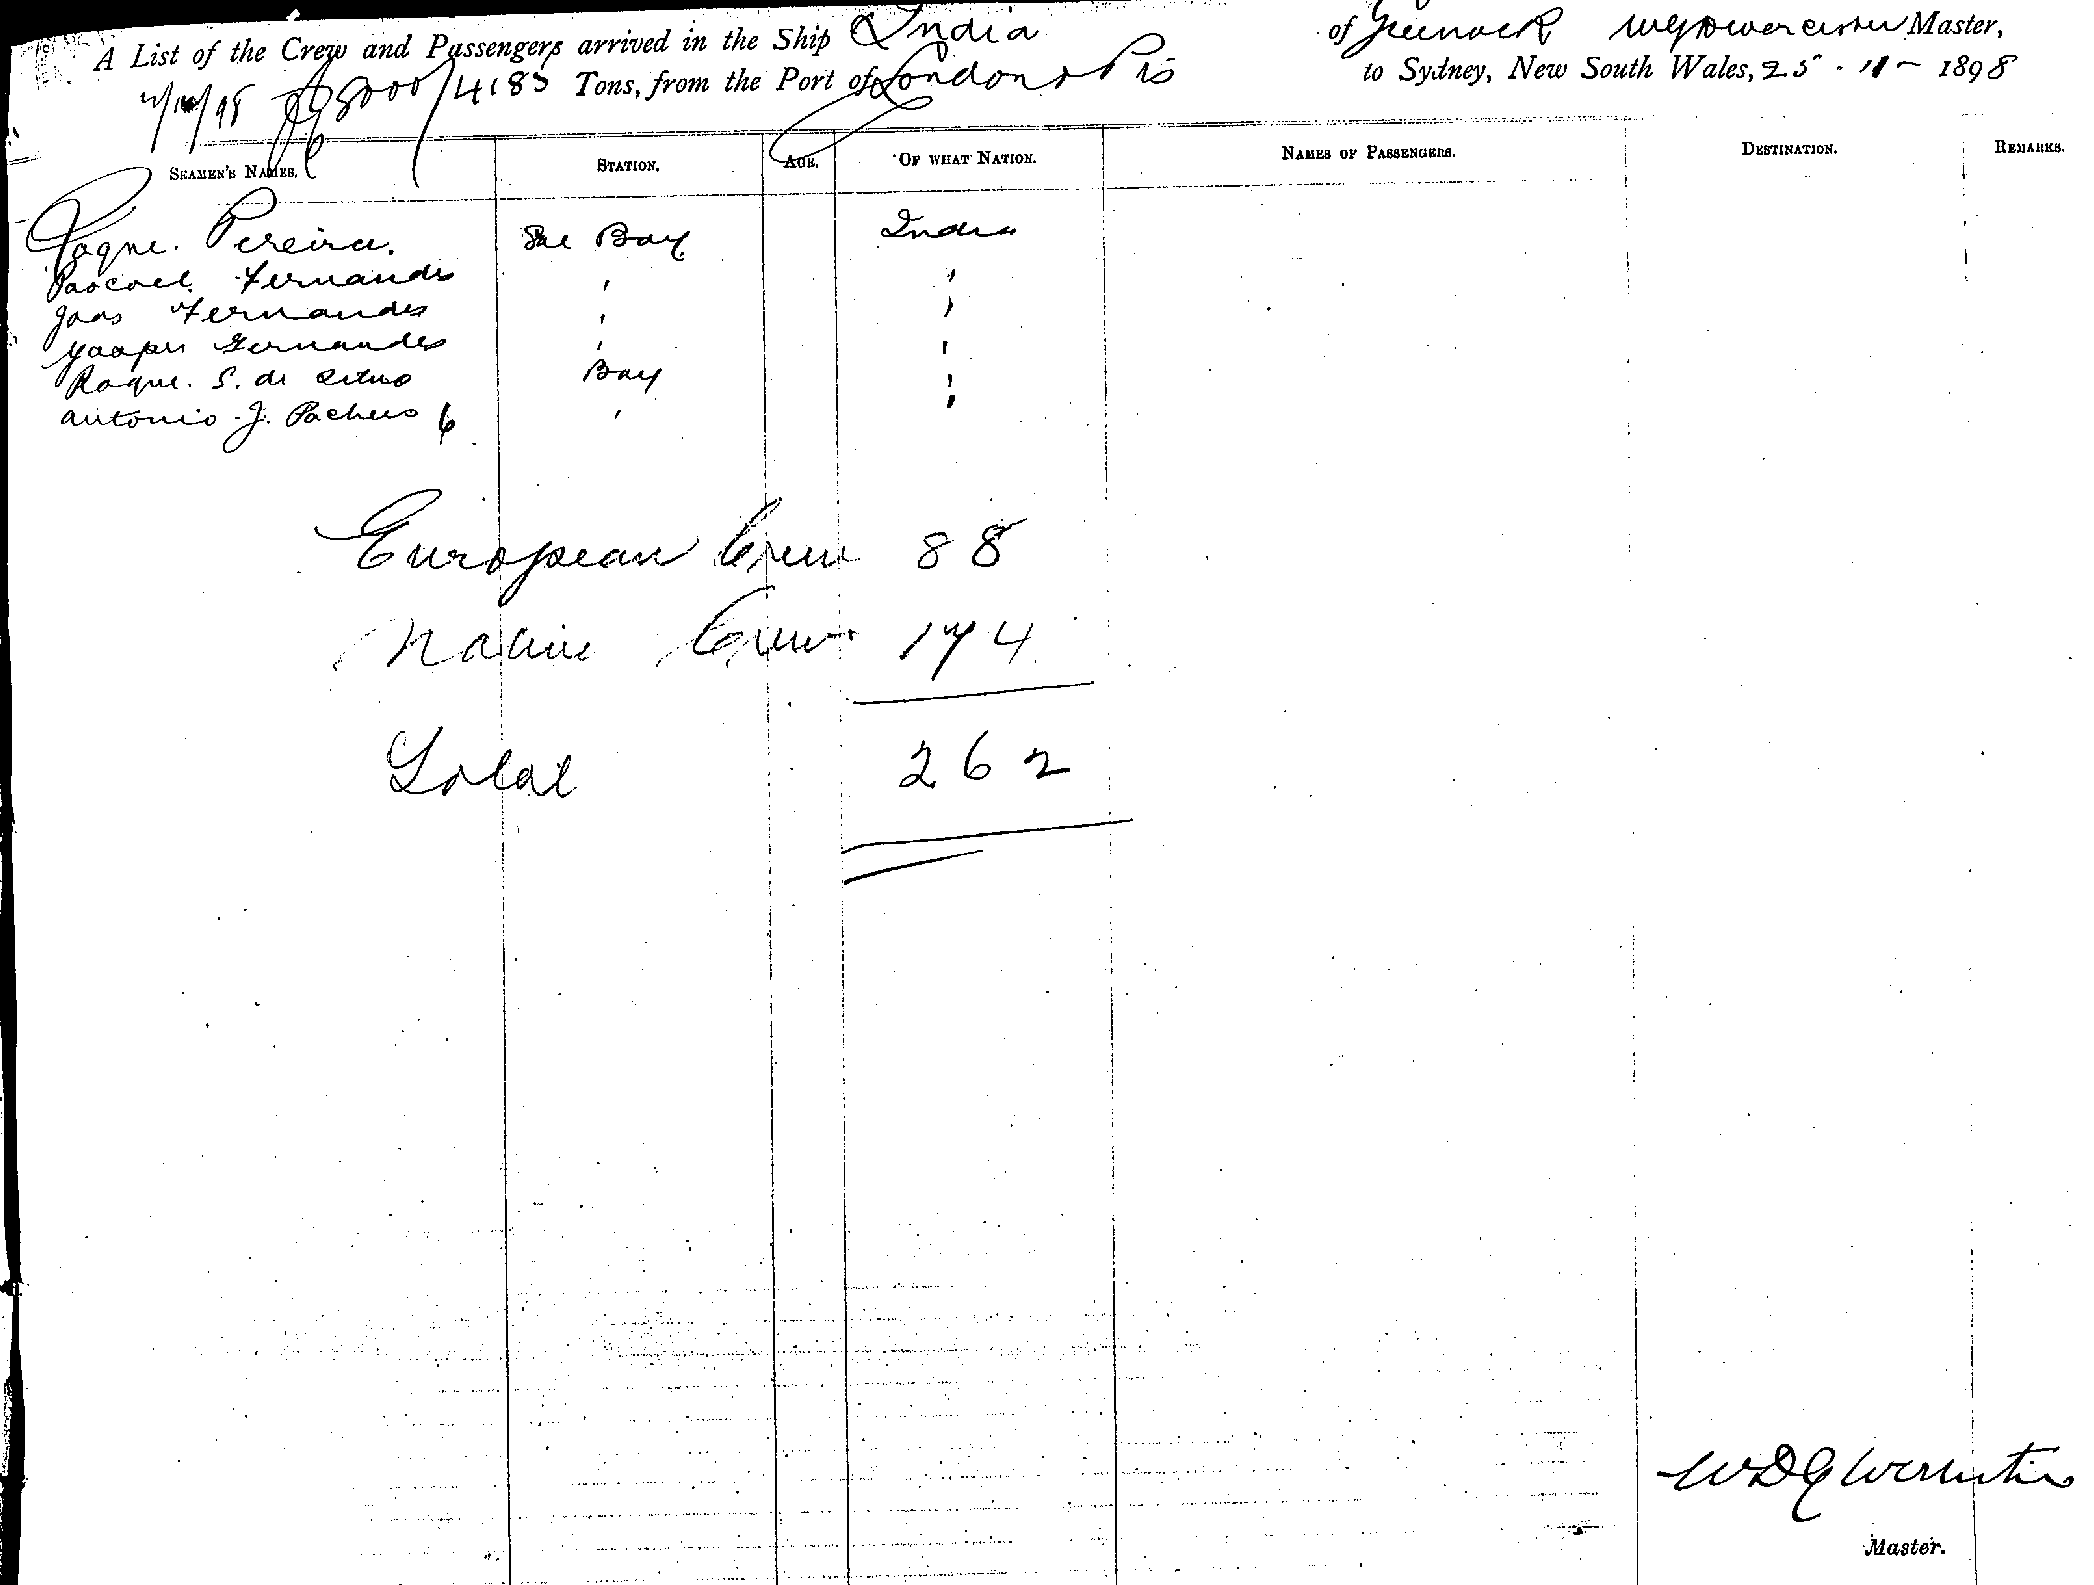 A List of the Crew and Passengers arrived in the Ship India of Greenock Worcester Master,
4183 Tons, from the Port of London & Pts to Sydney, New South Wales, 25 . 11 - 1898
SEAMEN'S NAMES. STATION. AGE. OF WHAT NATION. NAMES OF PASSENGERS. DESTINATION. REMARKS.
Roque. Pereira. Boy India
Pascoel Fernandes ' '
Joas Fernandes ' '
Fernandes ' '
Roque. S. de Boy '
Antonio J. Pacheco 6 ' '
European Crew 88
Native Crew 174
Total 262
WDG Worcester
Master.